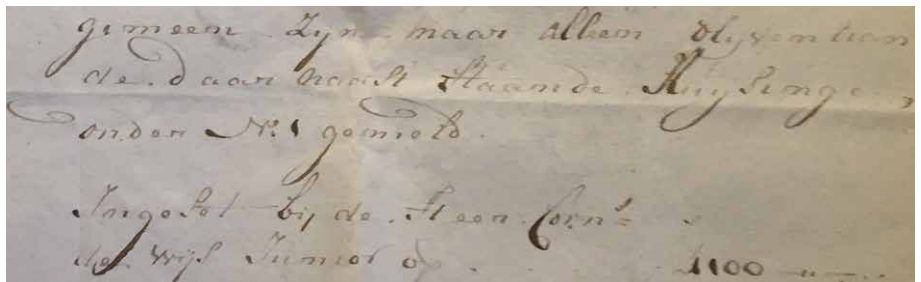 gemeen Zyn maar alleen blyven aan
de daar naast Staande Huysinge
onder N.º 1 gemeld.
Ingeset bij de Heer Corn.s
de Wijs Junior op 1100